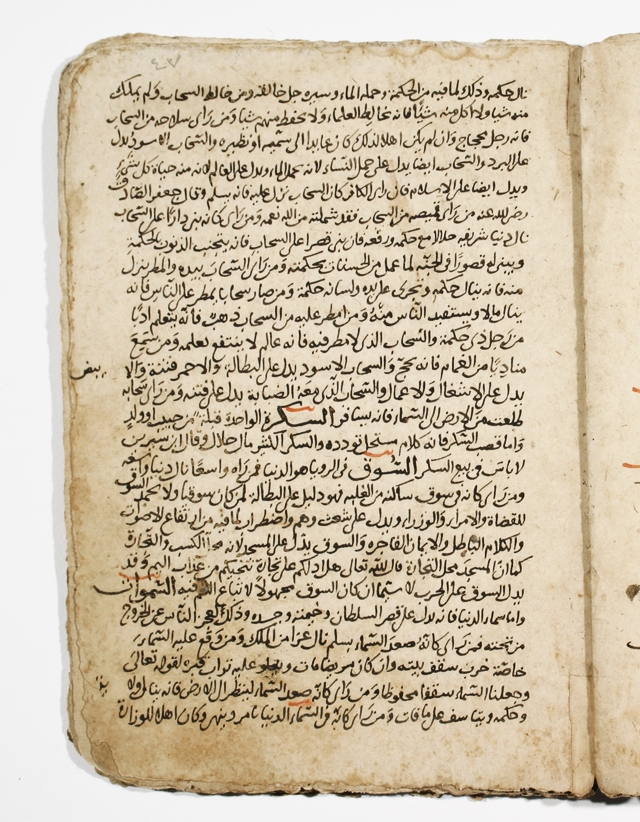 نال حكمه وذلك لما فيه من الحكمة وحمله الماء وسيره جل خالقه ومن خالط السحاب ولم يملك
منه شيا ولا اكل منه شيا فانه يخالط العلماء ولا يحفظ منهم شيا ومن راى سلاحه من السحاب
فانه رجل محجاج وان لم يكن اهلا لذلك كان عابدا الى سميه او نظيره والسحاب الاسود يدل
على البرد والسحاب ايضا يدل على حمل النساء لانه يحمل الماء ويدل على العالم لانه منه حياة كل شيء
ويدل ايضا على الاسلام فان راى الكافر كان السحاب نزل عليه فانه يسلم وقال جعفر الصادق
رضي الله عنه من راى قميصه من السحاب فقد شملته من الله نعمه ومن راى كانه بنى دارا على السحاب
نال دنيا شريفه حلالا مع حكمه ورفعه فان بنى قصرا على السحاب فانه يتجنب الذنوب بحكمته
ويبنى له قصورا في الجنه لما عمل من الحسنات بحكمته ومن راى السحاب بيده والمطر ينزل
منه فانه ينال حكمه وتجري على يده ولسانه حكمة ومن صار سحابا يمطر على الناس فانه
ينال مالا ويستفيد الناس منه ومن امطر عليه من السحاب ذهب فانه يتعلم ادبا
من رجل ذي حكمة والسحاب الذي لا مطر فيه فانه عالم لا ينتفع بعلمه ومن سمع
مناديا من الغمام فانه يحج والسحاب الاسود يدل على البطاله والاحمر فتنة والا
بيض
يدل على الاشتغال والاعمال والسحاب الذي معه الضبابة يدل على فتنه ومن راى سحابه
طلعت من الارض الى السماء فانه يسافر السكره الواحدة قبلة من حبيب او ولد
واما قصب السكر فانه كلام يستحلى تردده والسكر الكثير مال حلال وقال ابن سيرين
لا باس في بيع السكر السوق في الرويا هو الدنيا فمن راه واسعا نال دنيا واسعه
ومن راى كانه في سوق ساكنه من الغلبه فهو دليل على البطالة لمن كان سوقيا ولا تحمد السوق
للقضاة والامراء والوزراء ويدل على شغب وهم واضطراب لما فيه من ارتفاع الاصوات
والكلام الباطل والايمان الفاجره والسوق يدل على المسجد لانه محل الكسب والتجارة
كما ان المسجد محل التجارة قال الله تعالى هل ادلكم على تجارة تنجيكم من عذاب اليم وقد
يدل السوق على الحرب لا سيما ان كان السوق مجهولا لا تباع فيه السموات
واما سماء الدنيا فانه تدل على قصر السلطان وخيمته وجنده وذلك لعجز الناس عن الخروج
من تحته فمن راى كانه صعد السماء بسلم نال عزا من الملك ومن وقع عليه السماء
خاصة خرب سقف بيته وان كان مريضا مات ويعلو عليه تراب قبره لقوله تعالى
وجعلنا السماء سقفا محفوظا ومن راى كانه صعد السماء لينظر الى الارض فانه ينال ولا
يه
وحكمه ويتاسف على ما فات ومن راى كانه في السماء الدنيا يامر وينهى وكان اهلا للوزارة